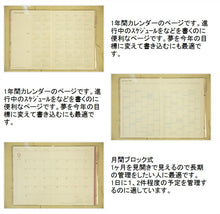 1年間カレンダーのページです。進
行中のスケジュールをなどを書くのに
便利なページです。夢を今年の目
標に変えて書き込むにも最適で
す。
1年間カレンダーのページです。進
行中のスケジュールをなどを書くのに
便利なページです。夢を今年の
目標に変えて書き込むにも最適
です。
月間ブロック式
1ヶ月を見開きで見えるので長期
の管理をしたい人に最適です。
1日に1、2件程度の予定を管理す
るのに適しています。